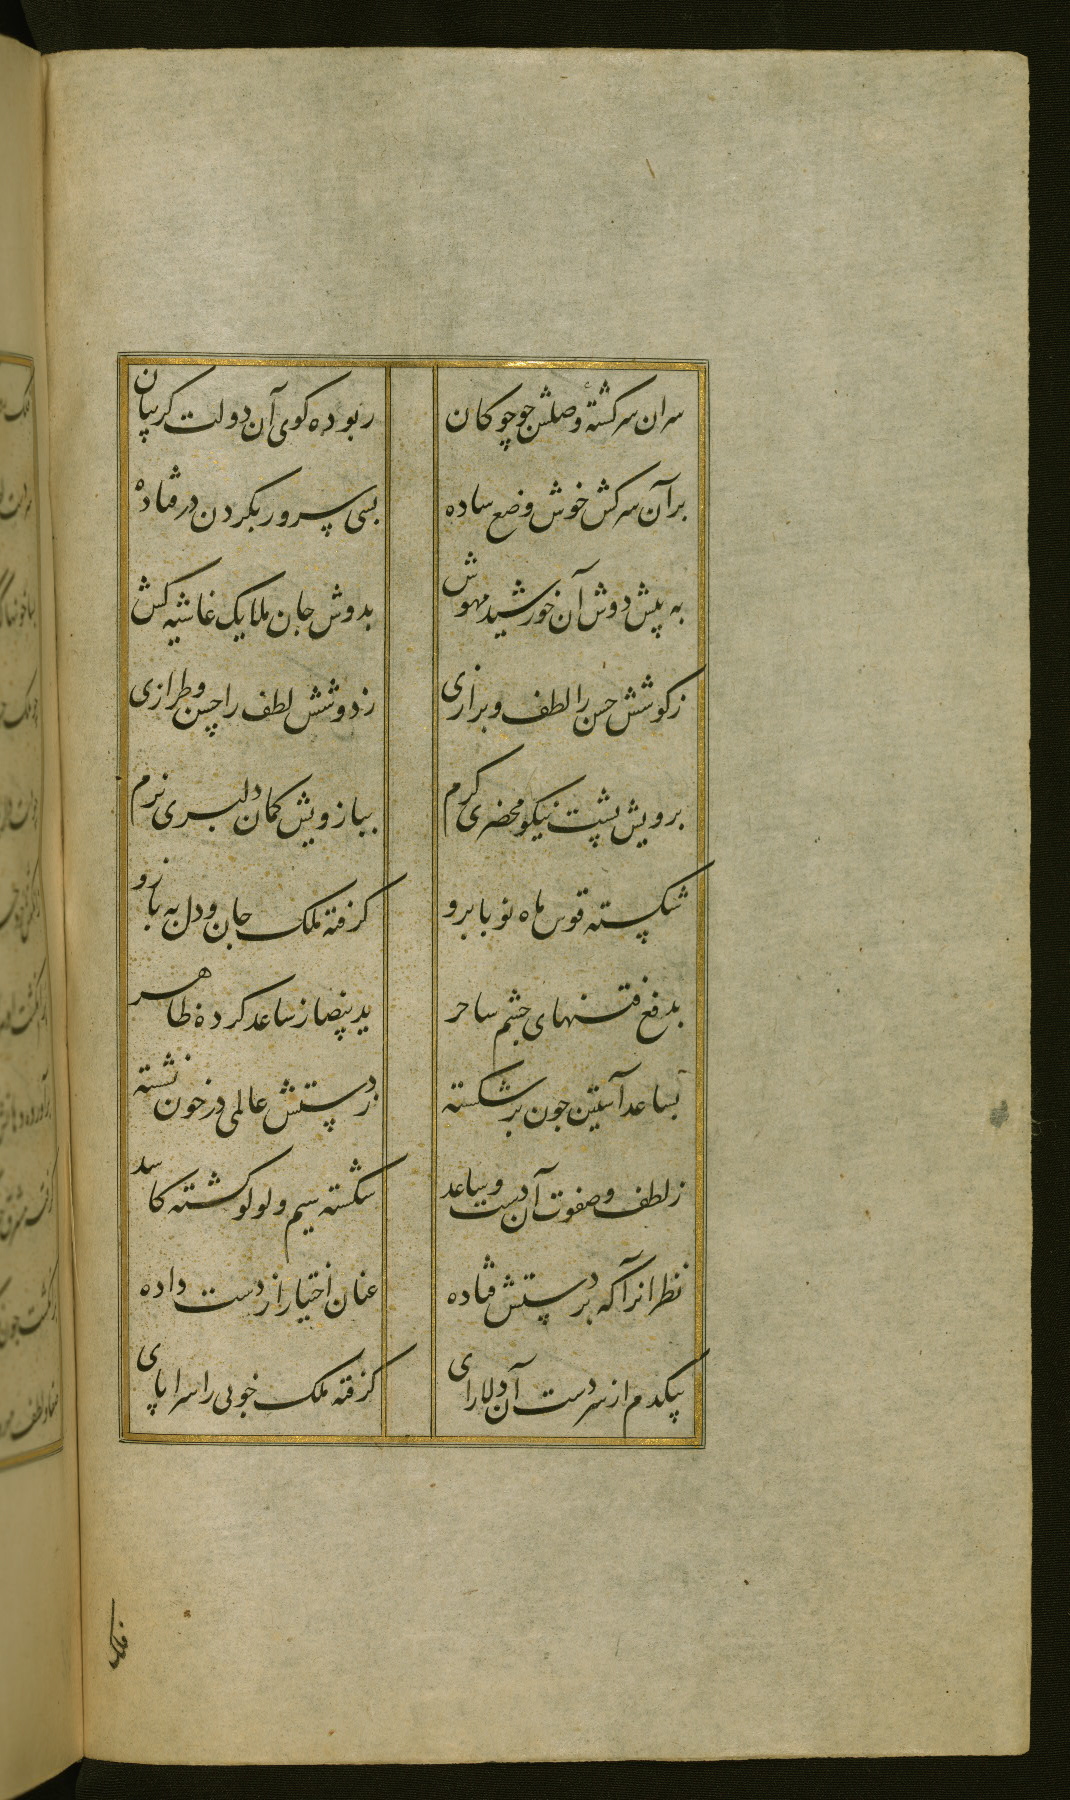 سران سرکشتهٔ وصلش جو جوکان
ربوده کوی آن دولت کریبان
بر آن سرکش خوش وضع ساده
بسی پرور بکردن در فتاده
به پیش دوش آن خورشید مهوش
بدوش جان ملایک غاشیه کش
ز کوشش حسن را لطف و برازی
ز دوشش لطف را چسن و طرازی
برویش پشت نیکو محضری کرم
ببازویش کمان دلبری نرم
شکسته قوس ماه نو بابرو
کرفته ملک جان و دل به بازو
بدفع فتنهای جشم ساحر
ید بیضا ز ساعد کرده ظاهر
بساعد آستین جون بر شکسته
ز دستش عالمی در خون نشسته
ز لطف و صفوت آن دست و ساعد
شکسته سیم و لولو کشته کاسد
نظر انرا که بر دستش فتاده
عنان اختیار از دست داده
بیکدم از سر دست آن دلارای
کرفته ملک خوبی را سراپای
فلک